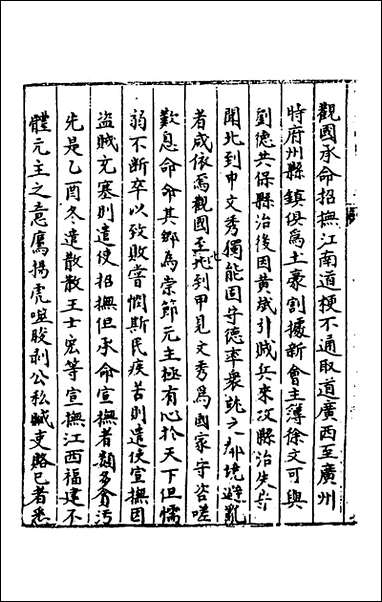 觀國承命招撫江南道梗不通取道廣西至廣州
時府州縣鎮俱為土豪割據新會主簿徐文可與
劉德共保縣治後因黃斌引賊兵來攻縣治失守
聞北到甲文秀獨能固守德率眾就之鄰境避亂
者咸依焉觀國至北到甲見文秀為國家守咨嗟
歎息命命其鄉為崇節元主極有心於天下但懦
弱不斷卒以致敗嘗憫斯民疾苦則遣使宣撫因
盜賊充塞則遣使招撫但承命宣撫者類多貪污
先是乙酉冬遣散散王士宏等宣撫江西福建不
體元主之意鷹揚虎噬朘剥公私贓吏賂已者悉